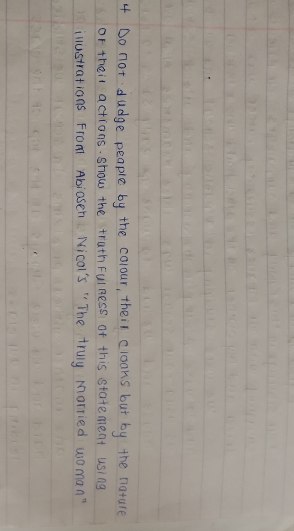 4 Do not dudge people by the colour, their clooks but by the nature
of their actions. show the truthfulness of this statement using
illustrations from Abioseh Nicol's "The truly married woman"